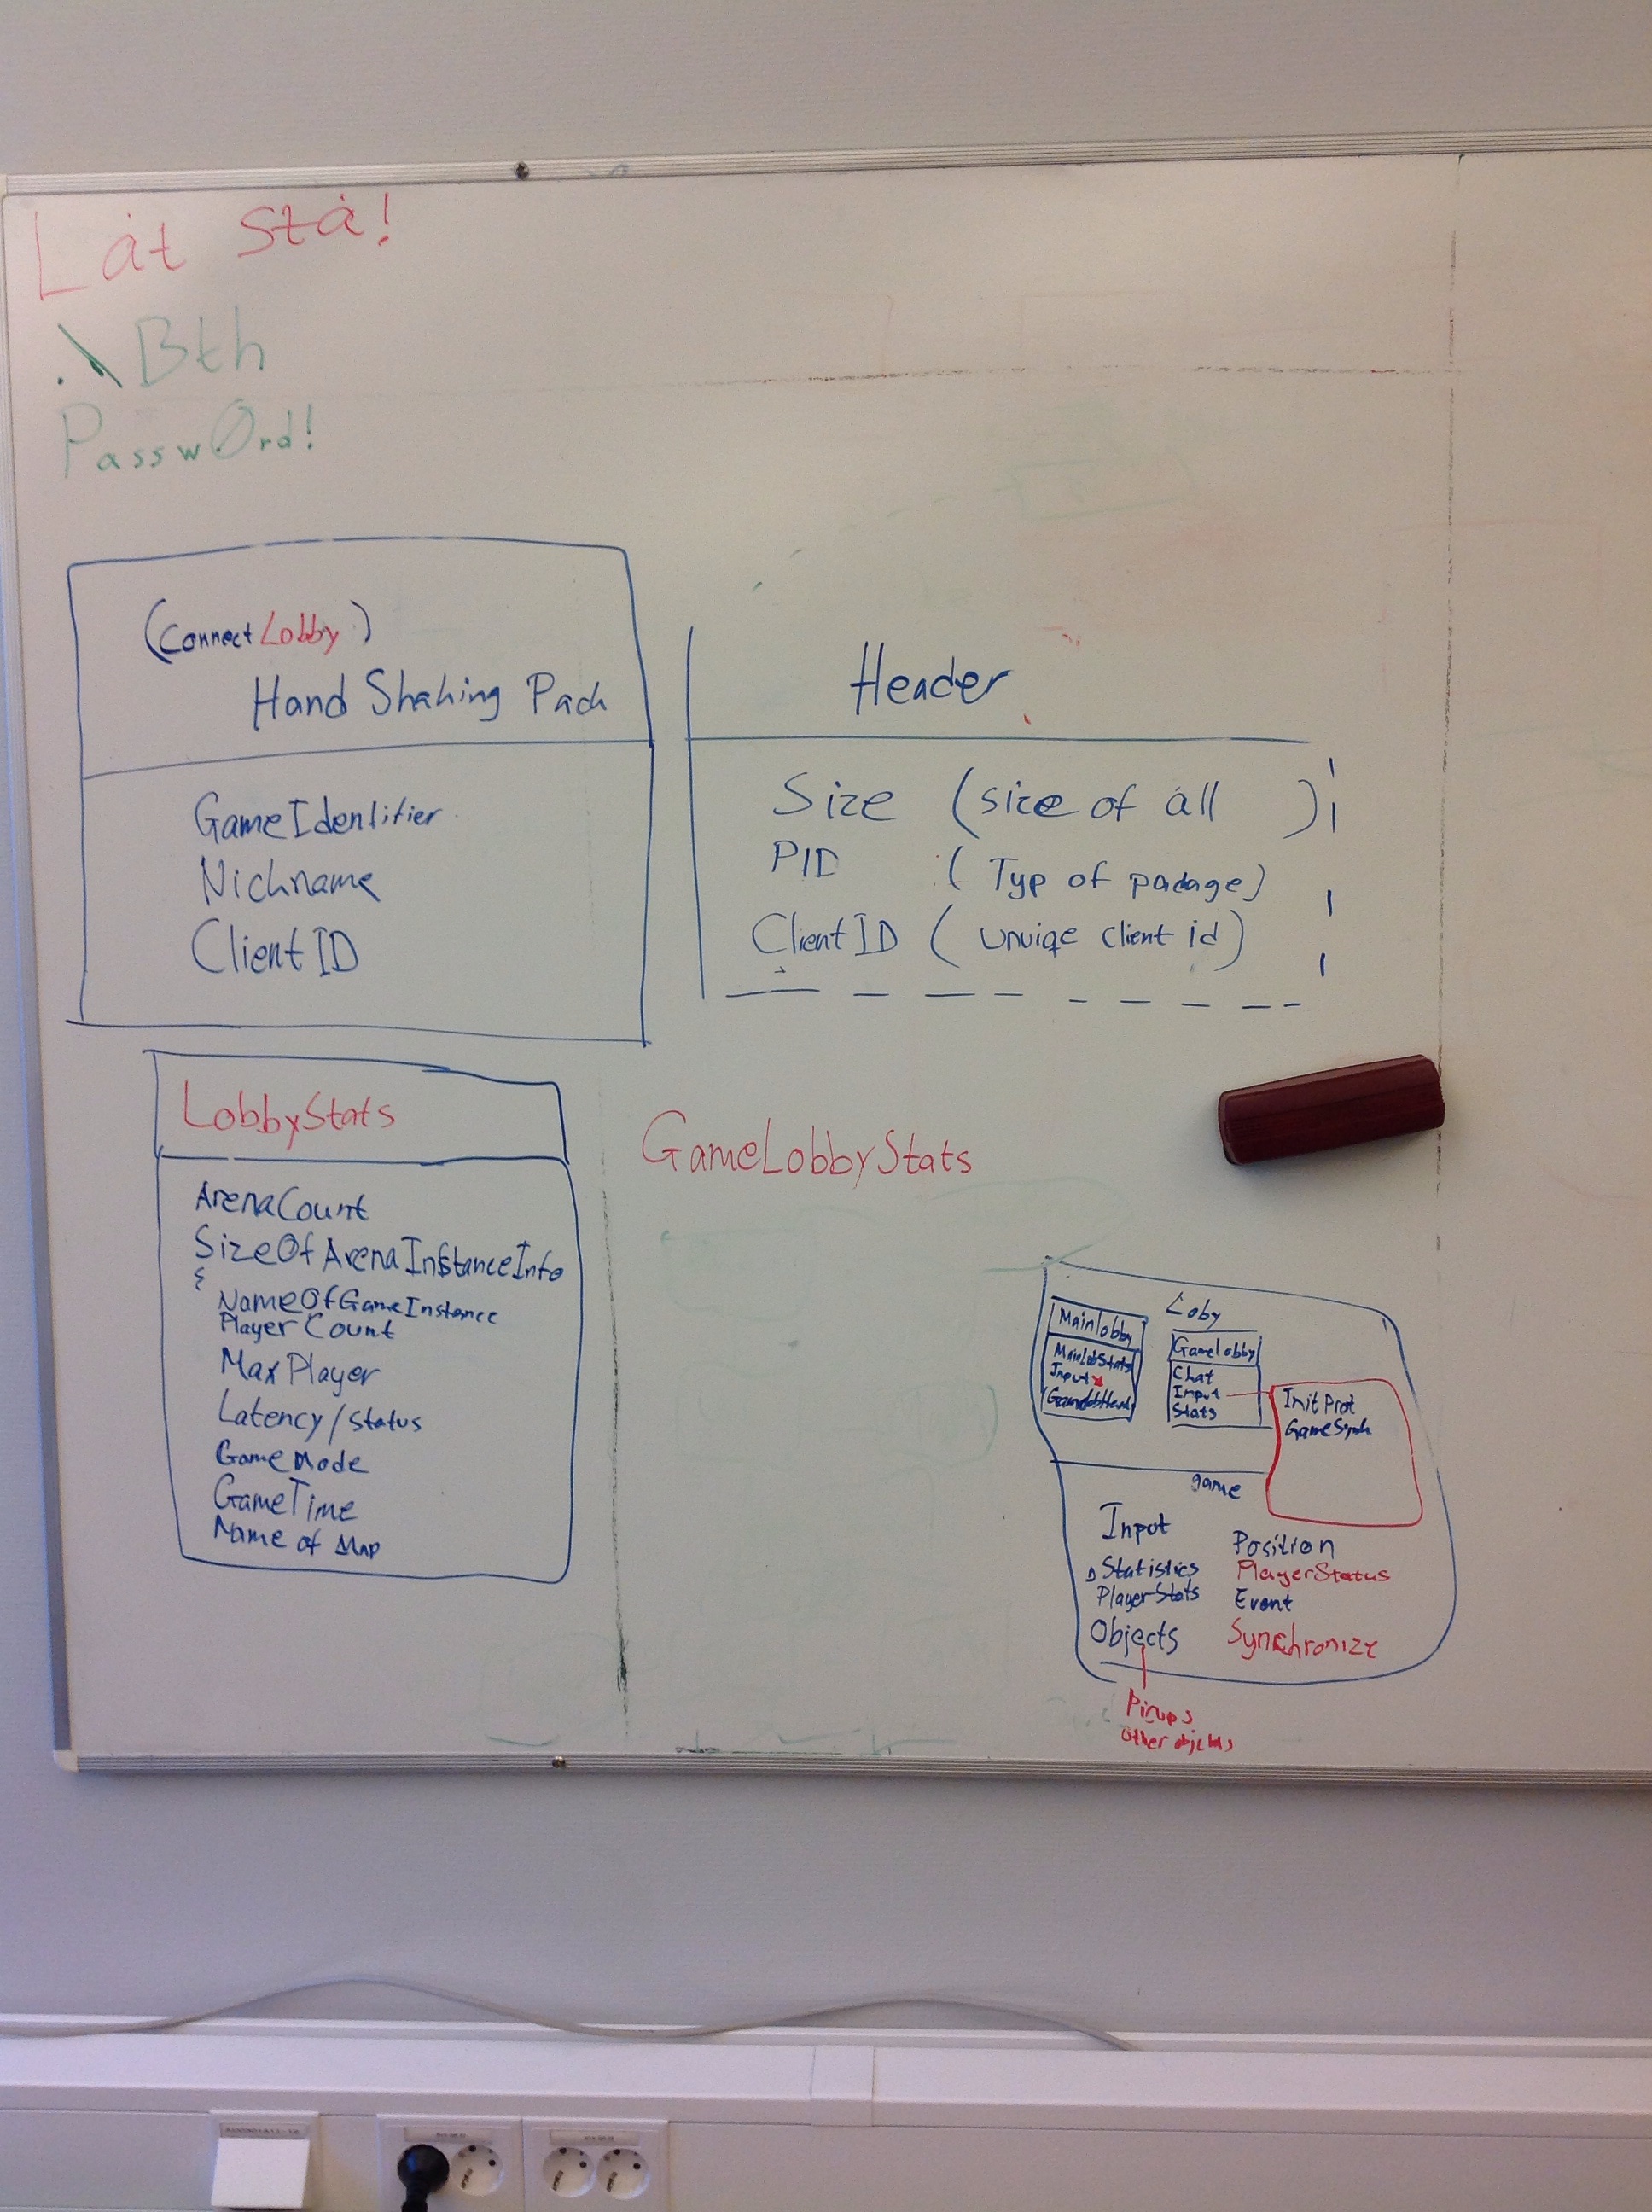 Låt stå!
.\Bth
Passw0rd!
(Connect Lobby)
Hand Shaking Pack
GameIdentifier
Nickname
ClientID
Header
Size (size of all )
PID ( Typ of package)
ClientID ( unuiqe client id)
LobbyStats
ArenaCount
SizeOfArenaInstanceInfo
{
NameOfGameInstance
Player Count
Max Player
Latency/status
GameMode
GameTime
Name of Map
GameLobbyStats
Loby
Mainlobby
MainLobStats
Input
Gamelobby
Chat
Input
Stats
InitProt
game
Input
Statistics
PlayerStats
Objects
Position
PlayerStatus
Event
Synchronize
other objects